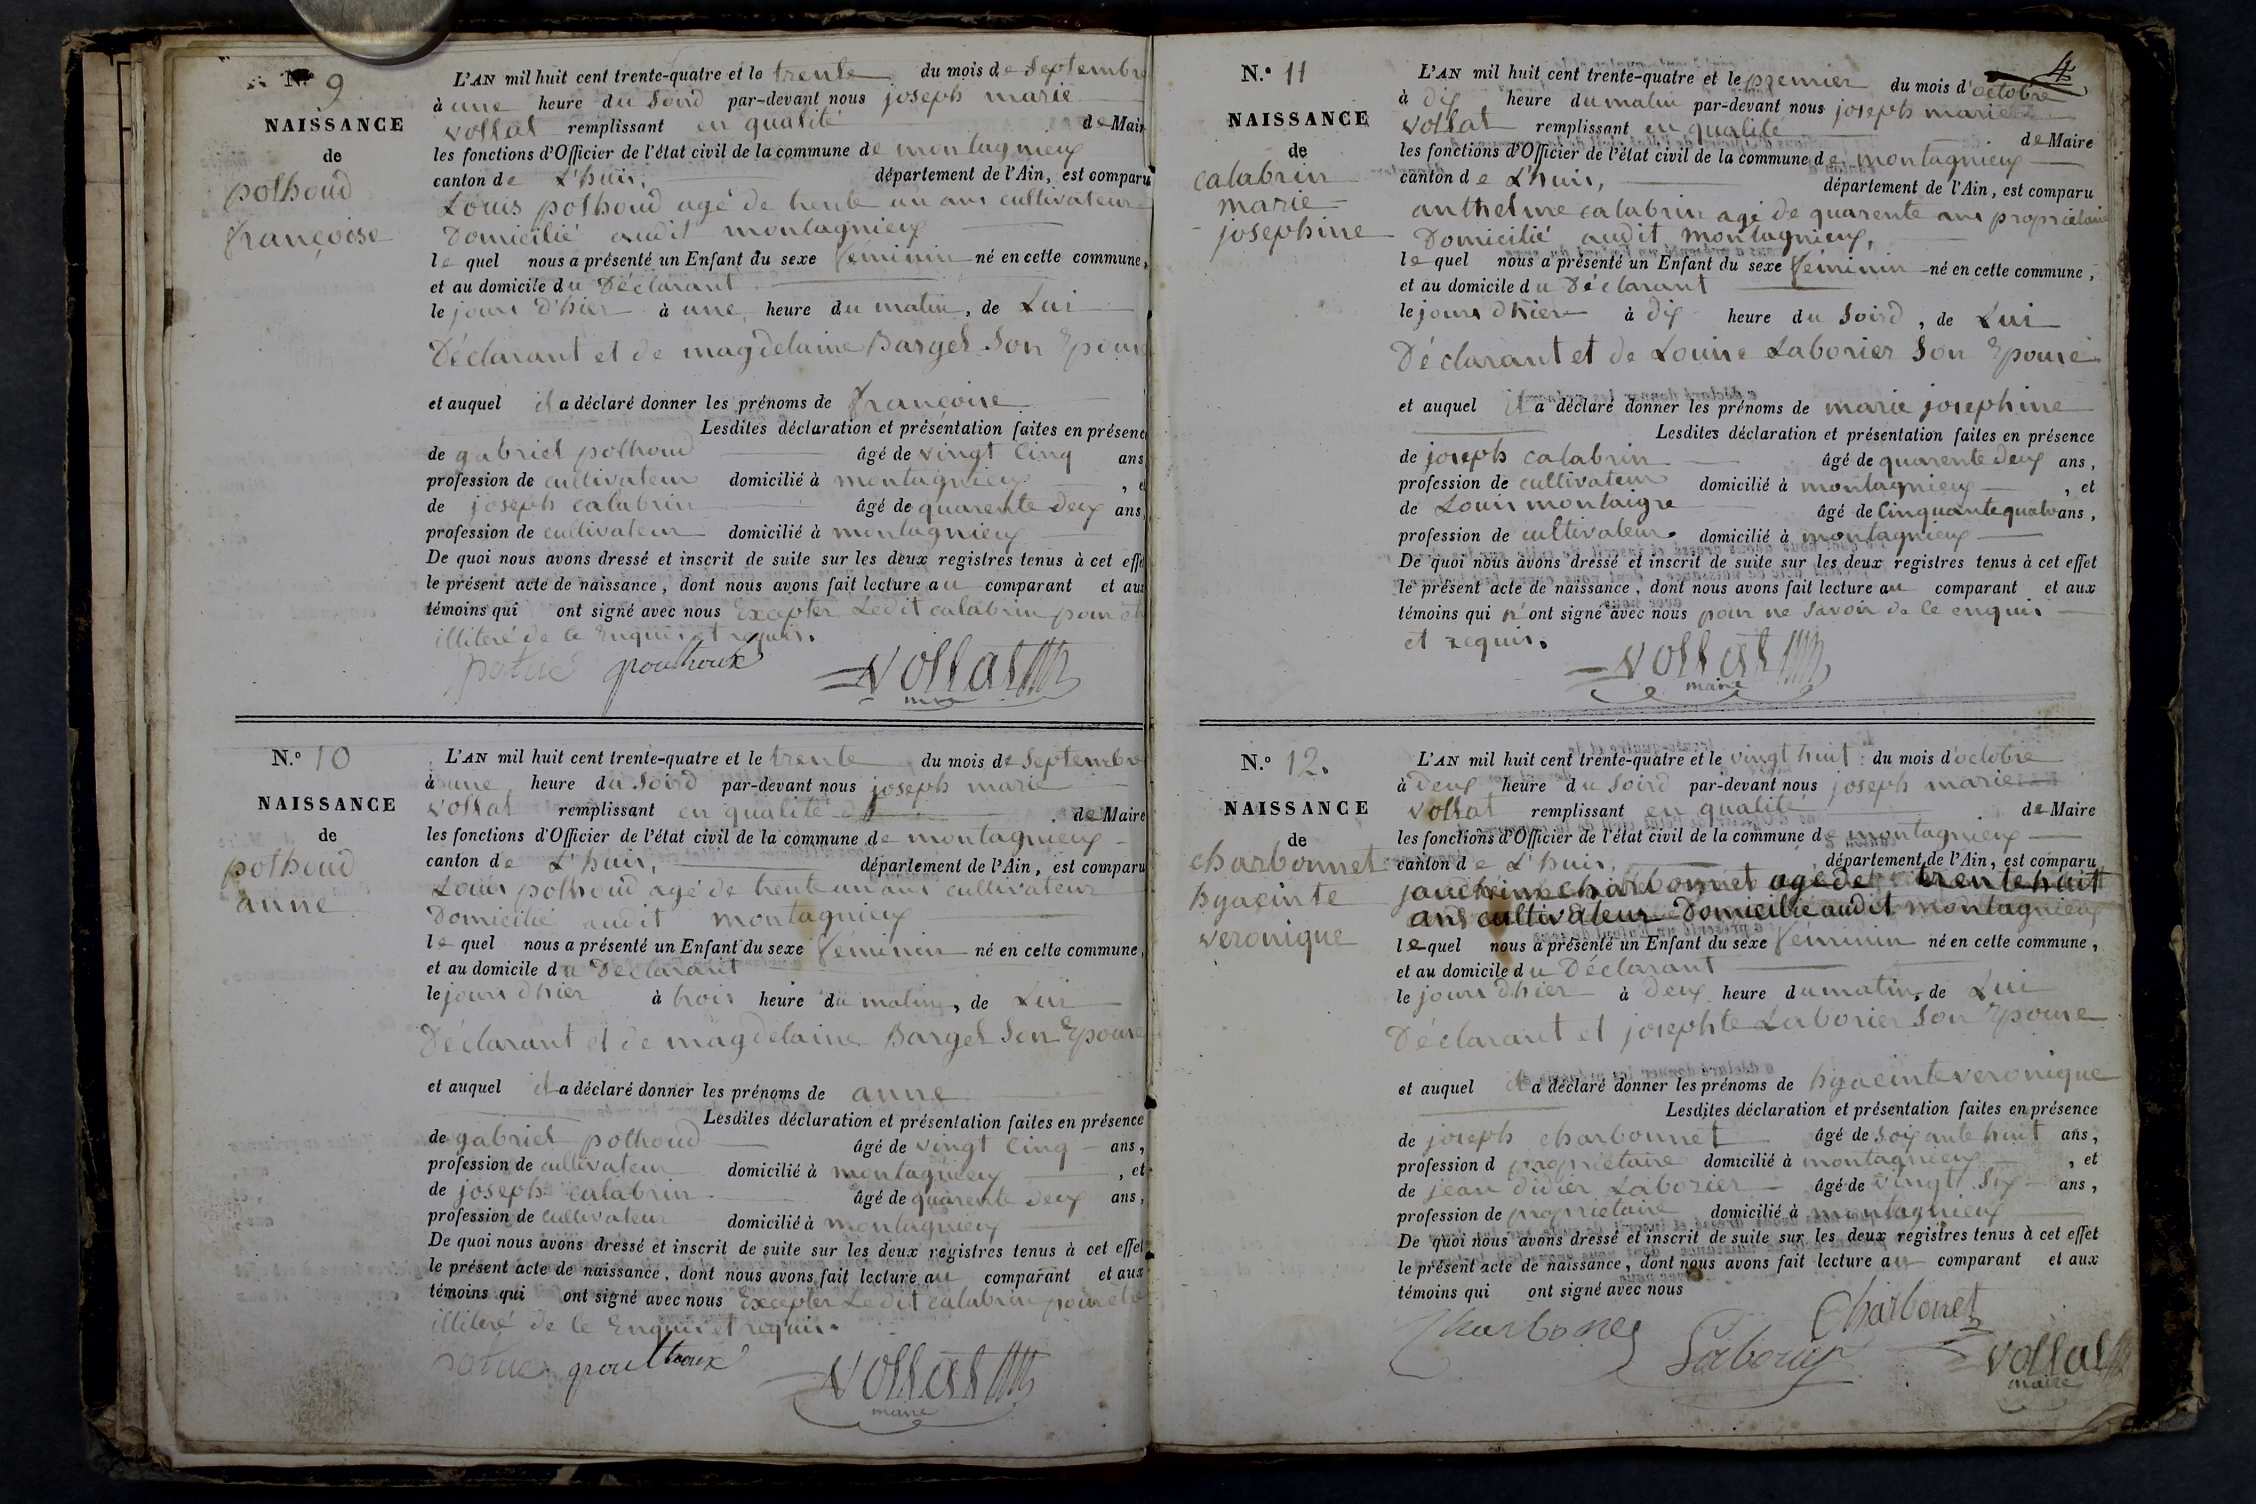 N.o 9
NAISSANCE
de
pothoud
françoise
L'AN mil huit cent trente-quatre et le trente du mois de Septembre
à une heure du Soird par-devant nous joseph marie
vollat remplissant en qualité de Maire
les fonctions d'Officier de l'état civil de la commune de montagnieux
canton de L'huis, département de l'Ain, est comparu
Louis pothoud agé de trente un ans cultivateur
Domicilié audit montagnieux
le quel nous a présenté un Enfant du sexe féminin né en cette commune,
et au domicile du Déclarant
le jours d'hier à une heure du matin, de Lui
Déclarant et de magdelaine Barget Son Epouse
et auquel il a déclaré donner les prénoms de françoise
Lesdites déclaration et présentation faites en présence
de gabriel pothoud âgé de vingt Cinq ans
profession de cultivateur domicilié à montagnieux, et
de joseph calabrin âgé de quarente deux ans,
profession de cultivateur domicilié à montagnieux
De quoi nous avons dressé et inscrit de suite sur les deux registres tenus à cet effet
le présent acte de naissance, dont nous avons fait lecture au comparant et aux
témoins qui ont signé avec nous Excepter Ledit calabrin pour
illiteré de ce Enquis et requis.
pouthoux vollat
maire
N.o 10
NAISSANCE
de
pothoud
anne
L'AN mil huit cent trente-quatre et le trente du mois de Septembre
à une heure du Soird par-devant nous joseph marie
vollat remplissant en qualité de Maire
les fonctions d'Officier de l'état civil de la commune de montagnieux
canton de L'huis, département de l'Ain, est comparu
Louis pothoud agé de trente un ans cultivateur
Domicilié audit montagnieux
le quel nous a présenté un Enfant du sexe féminin né en cette commune,
et au domicile du Déclarant
le jours dhier à trois heure du matin, de Lui
Déclarant et de magdelaine Barget Son Epouse
et auquel il a déclaré donner les prénoms de anne
Lesdites déclaration et présentation faites en présence
de gabriel pothoud âgé de vingt Cinq ans,
profession de cultivateur domicilié à montagnieux, et
de joseph calabrin âgé de quarente deux ans,
profession de cultivateur domicilié à montagnieux
De quoi nous avons dressé et inscrit de suite sur les deux registres tenus à cet effet
le présent acte de naissance, dont nous avons fait lecture au comparant et aux
témoins qui ont signé avec nous Excepter Ledit calabrin pour
illiteré de ce Enquis et requis.
poulthoux vollat
maire
4
N.o 11
NAISSANCE
de
calabrin
marie
josephine
L'AN mil huit cent trente-quatre et le premier du mois d'octobre
à dix heure du matin par-devant nous joseph marie
vollat remplissant en qualité de Maire
les fonctions d'Officier de l'état civil de la commune de montagnieux
canton de L'huis, département de l'Ain, est comparu
anthelme calabrin agé de quarente ans propriétaire
Domicilié audit montagnieux,
le quel nous a présenté un Enfant du sexe féminin né en cette commune,
et au domicile du Déclarant
le jours dhier à dix heure du Soird, de Lui
Déclarant et de Louise Laborier Son Epouse
et auquel il a déclaré donner les prénoms de marie josephine
Lesdites déclaration et présentation faites en présence
de joseph calabrin âgé de quarente deux ans,
profession de cultivateur domicilié à montagnieux, et
de Louis montaigre âgé de Cinquante quatre ans,
profession de cultivateur. domicilié à montagnieux
De quoi nous avons dressé et inscrit de suite sur les deux registres tenus à cet effet
le présent acte de naissance, dont nous avons fait lecture au comparant et aux
témoins qui n'ont signé avec nous pour ne Savoir de ce enquis
et requis.
vollat
maire
N.o 12.
NAISSANCE
de
charbonnet
hyacinte
veronique
L'AN mil huit cent trente-quatre et le vingt huit du mois d'octobre
à Deux heure du Soird par-devant nous joseph marie
vollat remplissant en qualité de Maire
les fonctions d'Officier de l'état civil de la commune de montagnieux
canton de L'huis, département de l'Ain, est comparu
charbonnet agé de trente huit
ans cultivateur Domicilié audit montagnieux
le quel nous a présenté un Enfant du sexe féminin né en cette commune,
et au domicile du Déclarant
le jours dhier à Deux heure du matin, de Lui
Déclarant et josephte Laborier Son Epouse
et auquel il a déclaré donner les prénoms de hyacinte veronique
Lesdites déclaration et présentation faites en présence
de joseph charbonnet âgé de Soixante huit ans,
profession d propriétaire domicilié à montagnieux, et
de jean didier Laborier âgé de vingt Six ans,
profession de propriétaire domicilié à montagnieux
De quoi nous avons dressé et inscrit de suite sur les deux registres tenus à cet effet
le présent acte de naissance, dont nous avons fait lecture au comparant et aux
témoins qui ont signé avec nous
Charbonet
Laborier vollat
maire